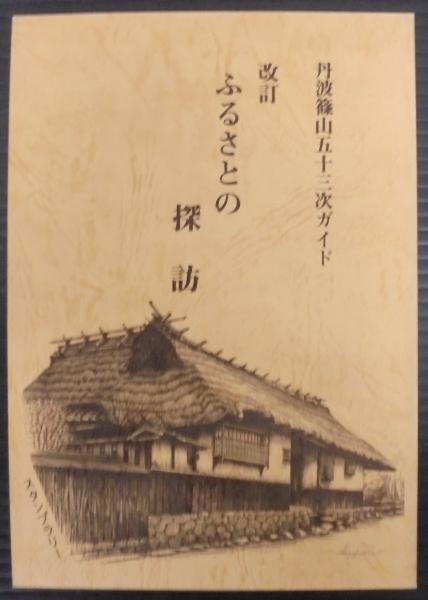 丹波篠山五十三次ガイド
改訂
ふるさとの
探訪